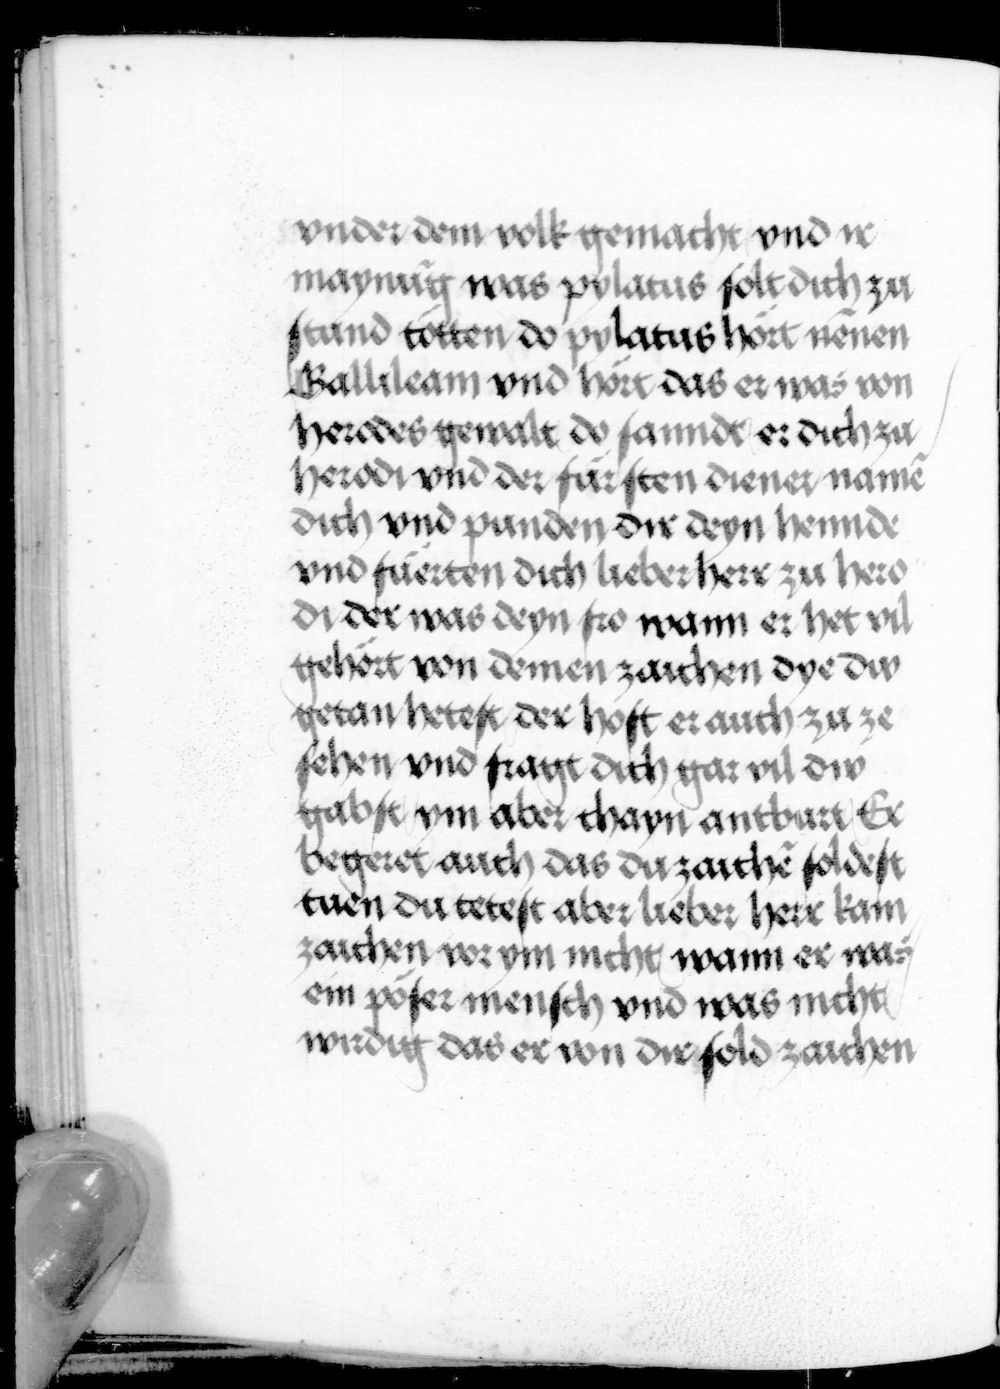 vnder dem volk gemacht vnd ir
maynūg was pylatus solt dich zu
stund tötten do pylatus hört nēnen
Gallileam vnd hört das er was von
herodes gewalt do sanndt er dich zu
herodi vnd der fürsten diener namē
dich vnd punden dir deyn hennde
vnd füerten dich lieber herr zu hero
di der was deyn fro wann er het vil
gehört von deinen zaichen dye dw
getan hetest der host er auch zu ze
sehen vnd fragt dich gar vil dw
gabst ym aber chayn antburt Er
begeret auch das du zaichē soldest
tuen du tetest aber lieber herr kam
zaichen vor ym nicht wann er was
ein pöser mensch vnd was nicht
wirdig das er von dir sold zaichen